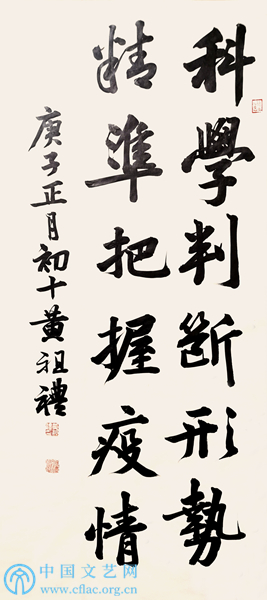 科學判斷形勢
精準把握疫情
庚子正月初十黄祖禮
中国文艺网
www.cflac.org.cn